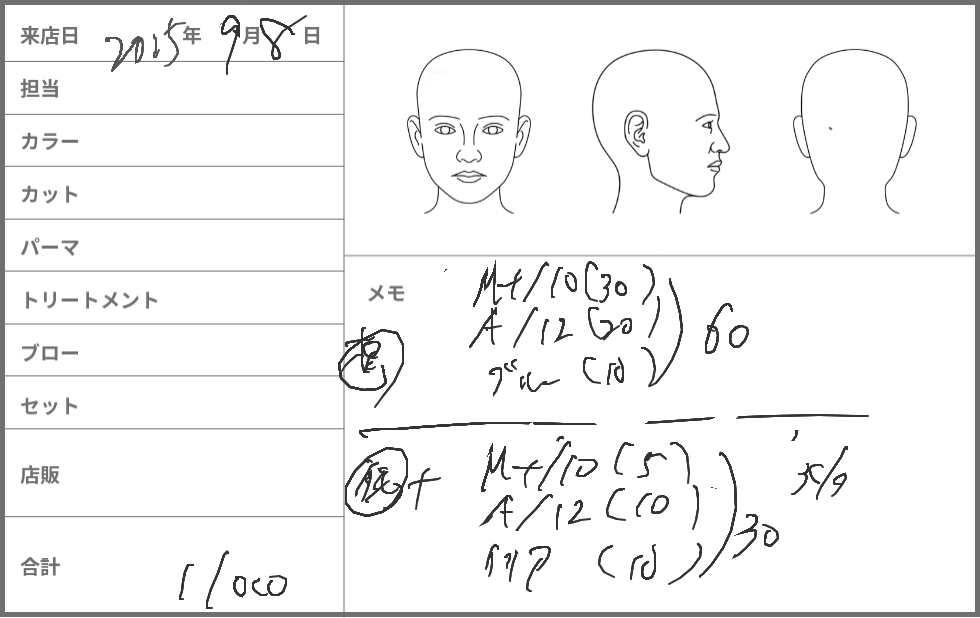 来店日 2015年 9月8日
担当
カラー
カット
パーマ
トリートメント
ブロー
セット
店販
合計 11000
メモ
M+/10(30)
A/12(20) 60
ブルー(10)
M+/10(5)
A/12(10)
クリア(10) 30